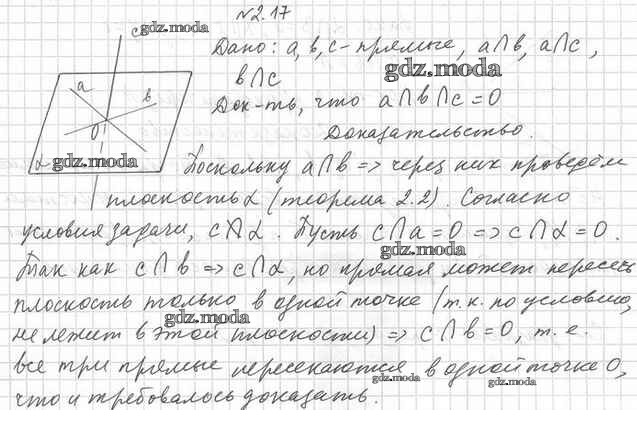 №2.17
c gdz.moda
Дано: a, b, c - прямые, a∩b, a∩c,
gdz.moda
b∩c
a
b
Док-ть, что a∩b∩c=0
0
Доказательство.
α gdz.moda
Поскольку a∩b => через них проведём
плоскость α (теорема 2.2). Согласно
условия задачи, c α. Пусть c∩a=0 => c∩α=0.
gdz.moda
Так как c∩b => c∩α, но прямая может пересечь
плоскость только в одной точке (т.к. по условию,
gdz.moda
не лежит в этой плоскости) => c∩b=0, т.е.
все три прямые пересекаются в одной точке 0,
gdz.moda gdz.moda
что и требовалось доказать.